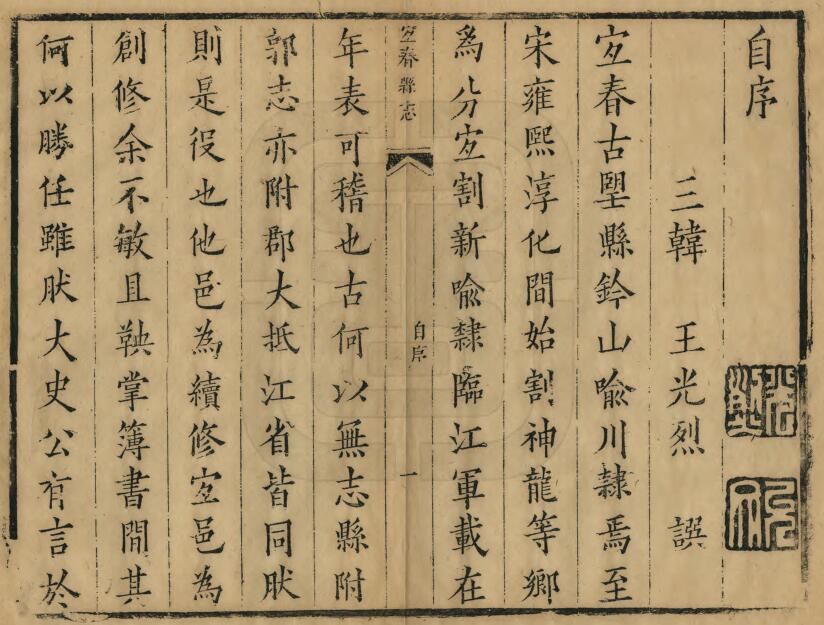 自序
三韓 王光烈 譔
宐春古望縣鈐山喻川隸焉至
宋雍熙淳化間始割神龍等鄉
爲分宐割新喻隸臨江軍載在
宐春縣志
自序
一
年表可稽也古何以無志縣附
郭志亦附郡大抵江省皆同肰
則是役也他邑為續修宐邑為
創修余不敏且鞅掌簿書間其
何以勝任雖肰大史公有言於